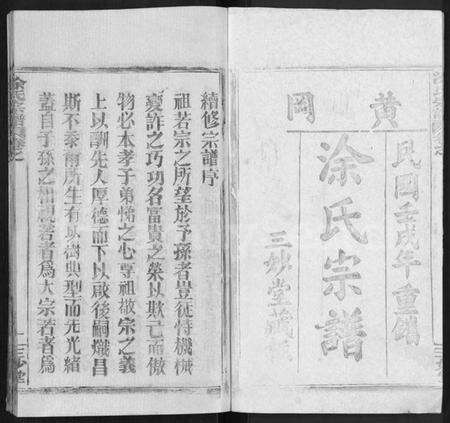 黄岡
民國壬戌年重鐫
涂氏宗譜
三妙堂藏
續修宗譜序
祖若宗之所望於子孫者豈徒恃機械
變詐之巧功名富貴之榮以欺己而傲
物必本孝子弟悌之心尊祖敬宗之義
上以酬先人厚德而下以啟後嗣熾昌
斯不忝爾所生有以樹典型而光光緒
蓋自子孫之 若者為大宗若者為
涂氏宗譜
三妙堂